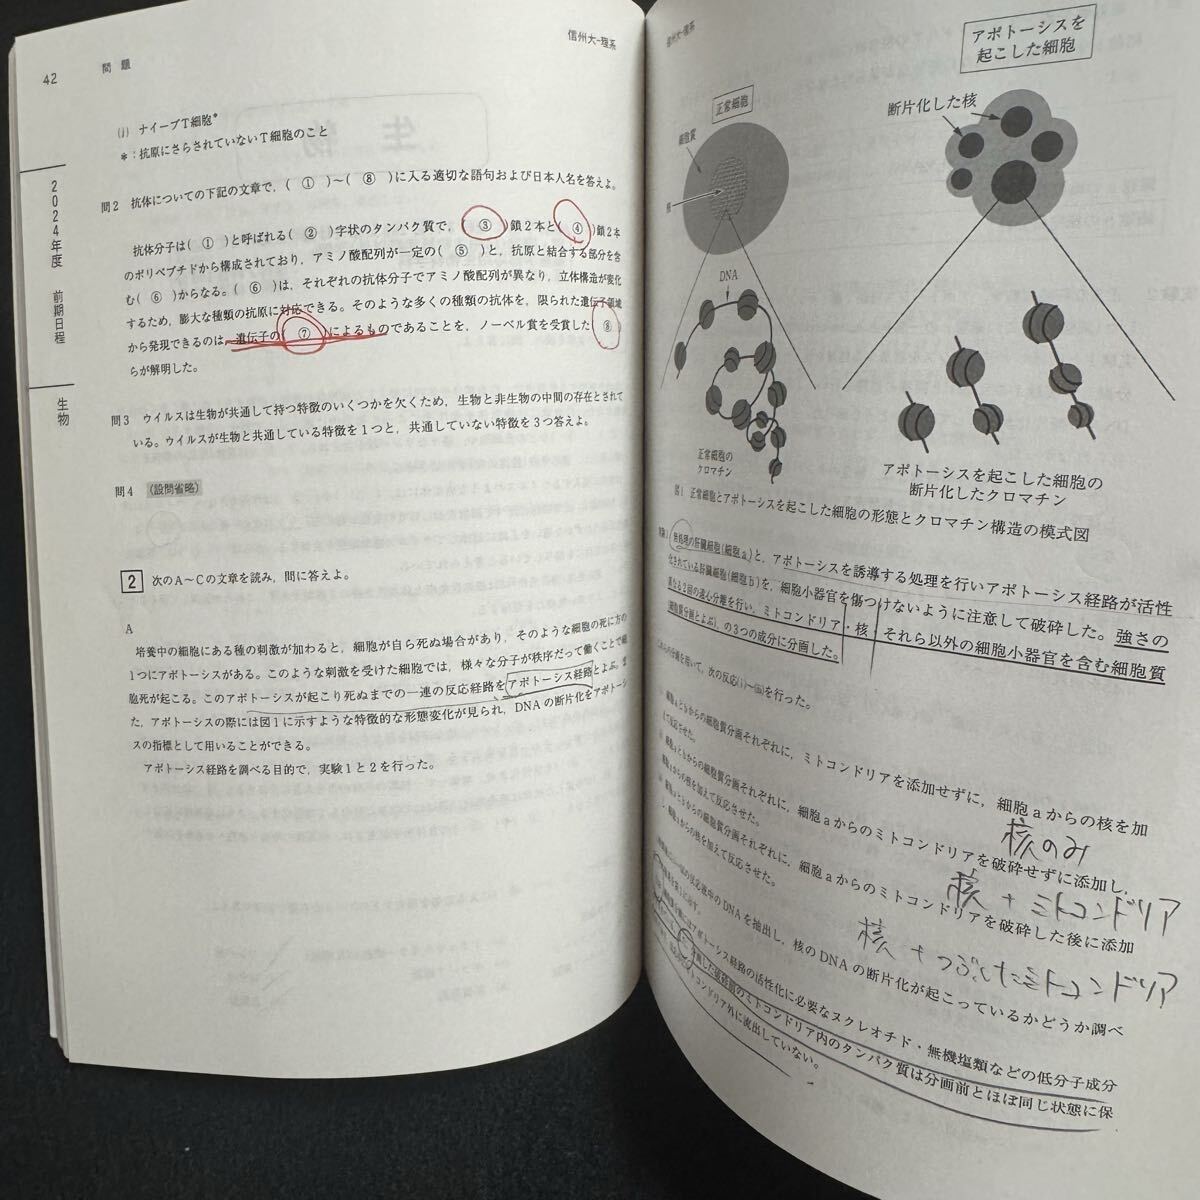 42 問題
信州大-理系
2024年度 前期日程 生物
(j) ナイーブT細胞*
*：抗原にさらされていないT細胞のこと
問2 抗体についての下記の文章で，( ① )～( ⑧ )に入る適切な語句および日本人名を答えよ。
抗体分子は( ① )と呼ばれる( ② )字状のタンパク質で，( ③ )鎖2本と( ④ )鎖2本
のポリペプチドから構成されており，アミノ酸配列が一定の( ⑤ )と，抗原と結合する部分を含
む( ⑥ )からなる。( ⑥ )は，それぞれの抗体分子でアミノ酸配列が異なり，立体構造が変化
するため，膨大な種類の抗原に対応できる。そのような多くの種類の抗体を，限られた遺伝子領域
から発現できるのは，遺伝子の( ⑦ )によるものであることを，ノーベル賞を受賞した( ⑧ )
らが解明した。
問3 ウイルスは生物が共通して持つ特徴のいくつかを欠くため，生物と非生物の中間の存在とされて
いる。ウイルスが生物と共通している特徴を1つと，共通していない特徴を3つ答えよ。
問4 〈設問省略〉
2 次のA～Cの文章を読み，問に答えよ。
A
培養中の細胞にある種の刺激が加わると，細胞が自ら死ぬ場合があり，そのような細胞の死に方の
1つにアポトーシスがある。このような刺激を受けた細胞では，様々な分子が秩序だって働くことで細
胞死が起こる。このアポトーシスが起こり死ぬまでの一連の反応経路をアポトーシス経路とよぶ。ま
た，アポトーシスの際には図1に示すような特徴的な形態変化が見られ，DNAの断片化をアポトーシ
スの指標として用いることができる。
アポトーシス経路を調べる目的で，実験1と2を行った。
信州大-理系
正常細胞
細胞質
核
DNA
正常細胞の
クロマチン
アポトーシスを
起こした細胞
断片化した核
アポトーシスを起こした細胞の
断片化したクロマチン
図1 正常細胞とアポトーシスを起こした細胞の形態とクロマチン構造の模式図
実験1 無処理の肝臓細胞(細胞a)と，アポトーシスを誘導する処理を行いアポトーシス経路が活性
化されている肝臓細胞(細胞b)を，細胞小器官を傷つけないように注意して破砕した。強さの
異なる2回の遠心分離を行い，ミトコンドリア・核・それら以外の細胞小器官を含む細胞質
(細胞質分画とよぶ)，の3つの成分に分画した。
これらの分画を用いて，次の反応(i)～(iii)を行った。
細胞aとbからの細胞質分画それぞれに，ミトコンドリアを添加せずに，細胞aからの核を加
えて反応させた。
核のみ
細胞aとbからの細胞質分画それぞれに，細胞aからのミトコンドリアを破砕せずに添加し，
細胞aからの核を加えて反応させた。
核 + ミトコンドリア
細胞aとbからの細胞質分画それぞれに，細胞aからのミトコンドリアを破砕した後に添加
細胞aからの核を加えて反応させた。
核 + つぶしたミトコンドリア
の反応液中のDNAを抽出し，核のDNAの断片化が起こっているかどうか調べ
にはアポトーシス経路の活性化に必要なヌクレオチド・無機塩類などの低分子成分
破砕前のミトコンドリア内のタンパク質は分画前とほぼ同じ状態に保
ミトコンドリア外に流出していない。